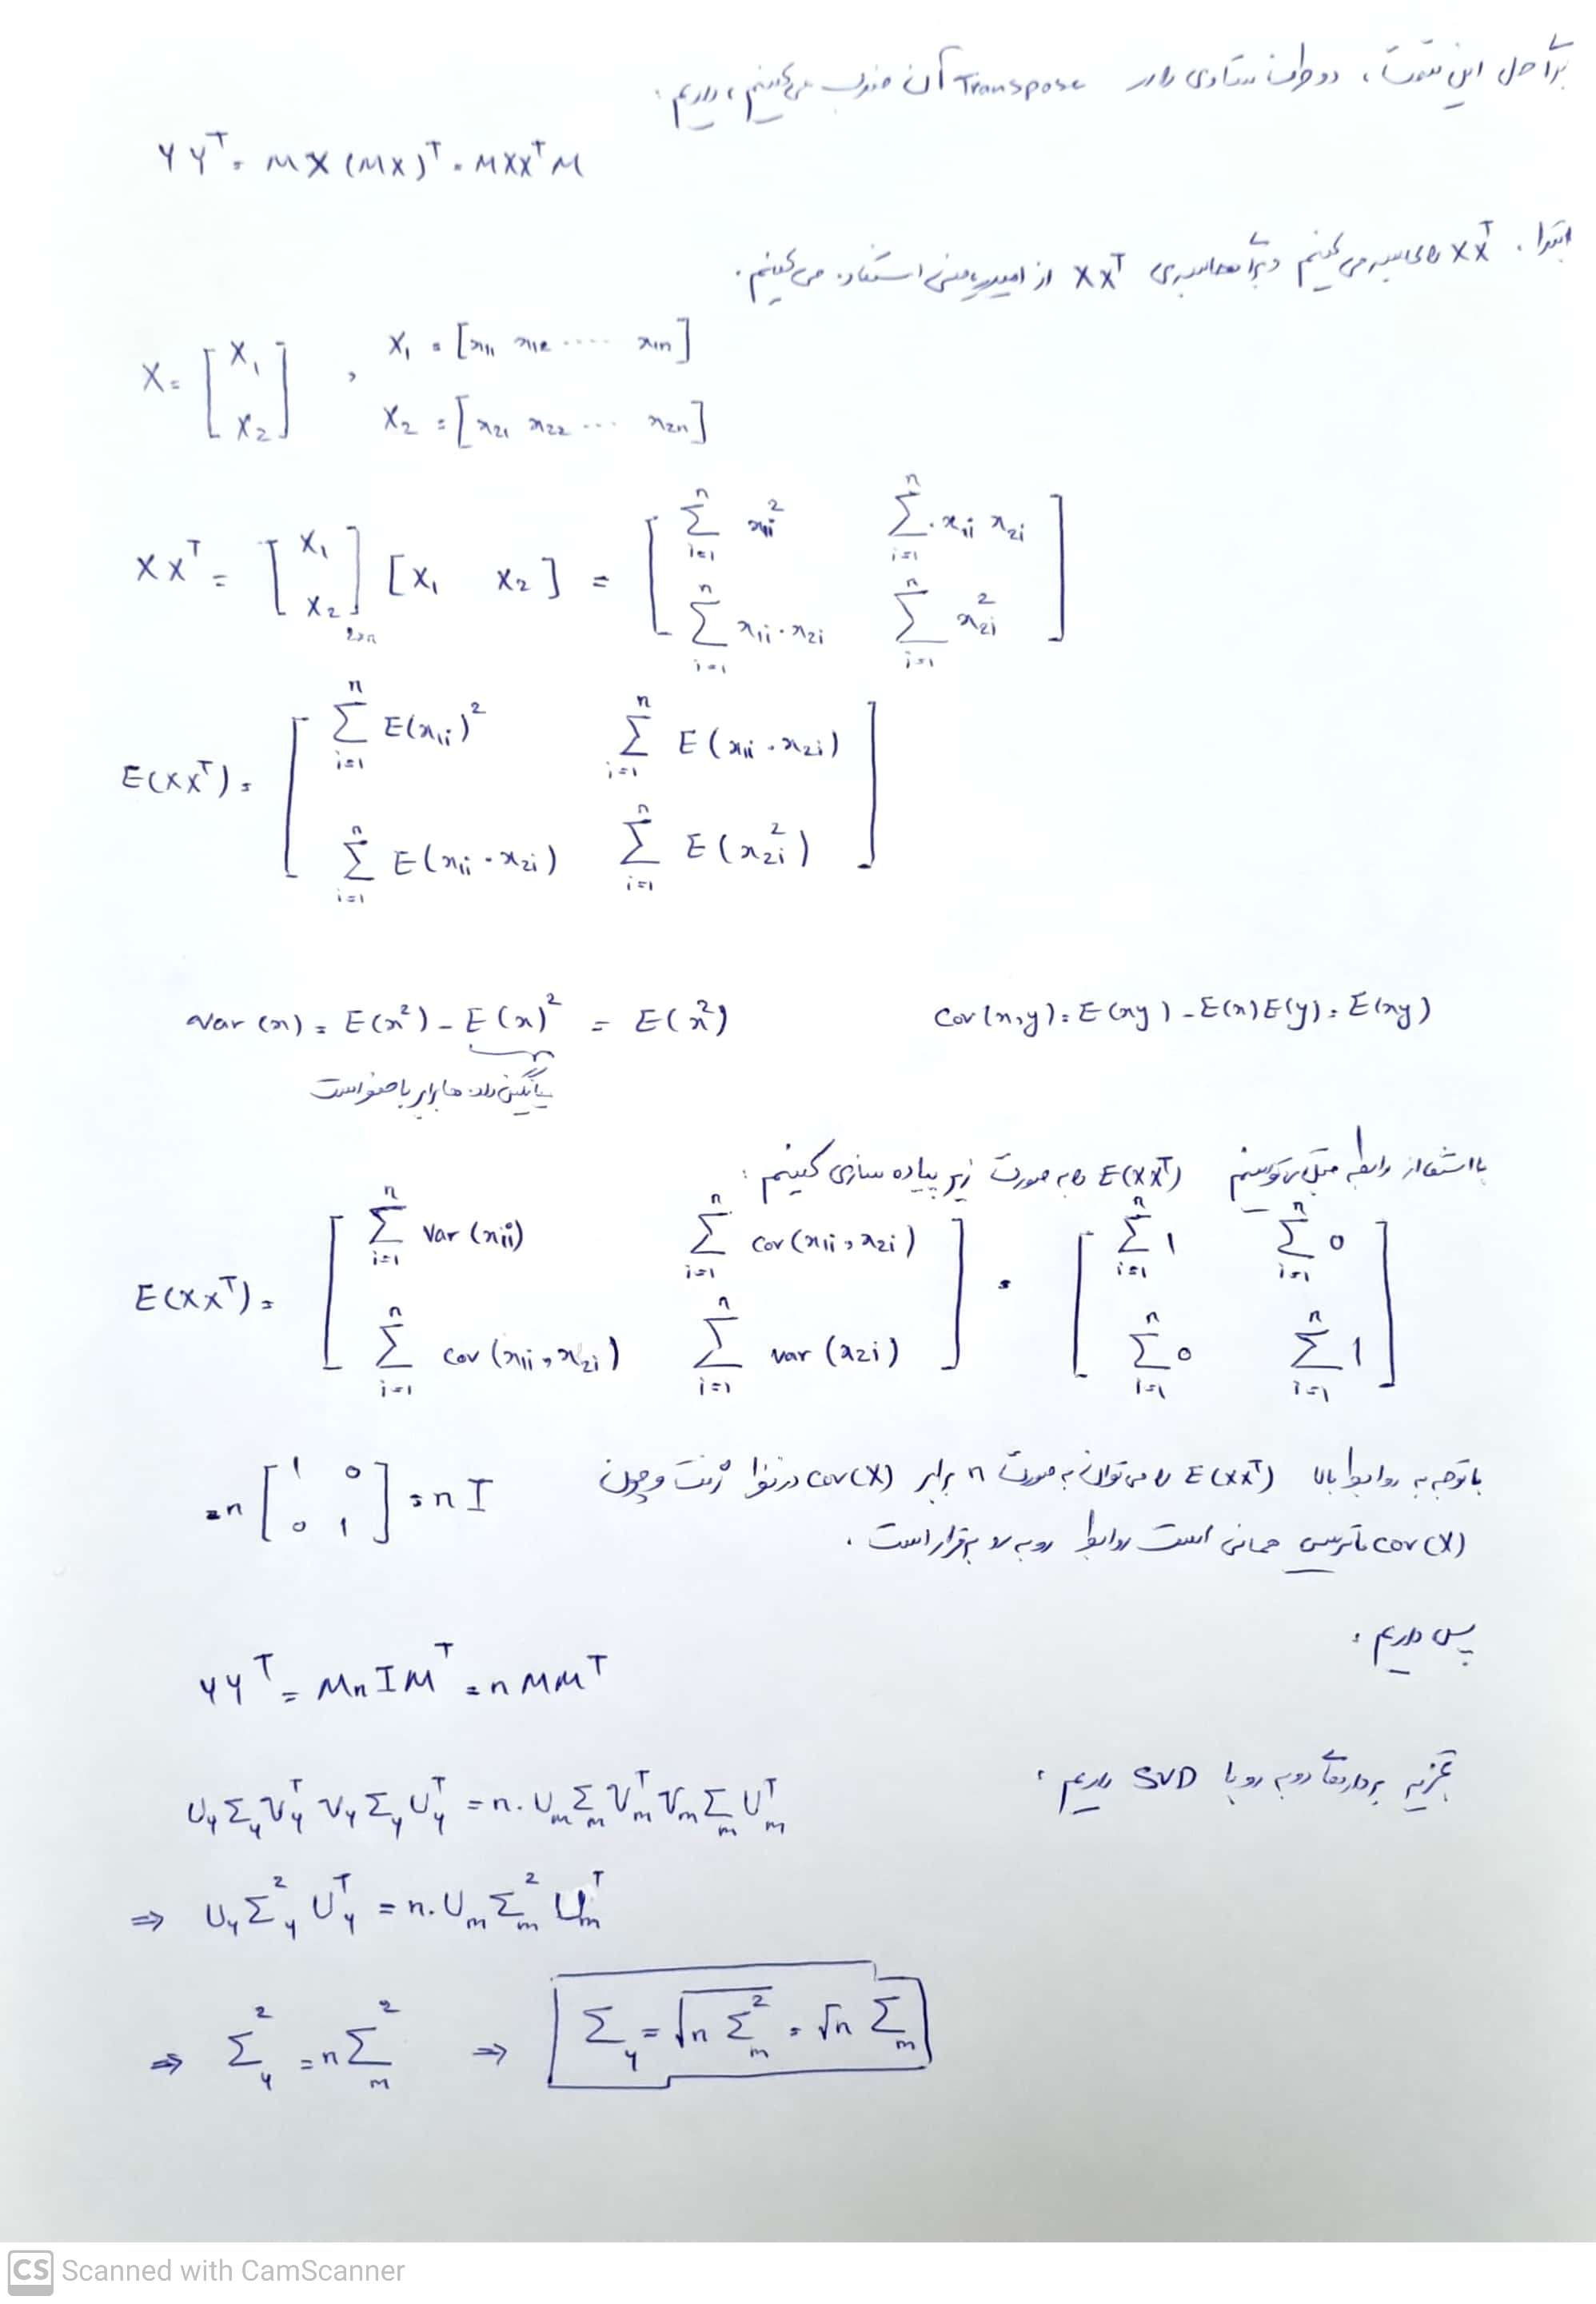 برای حل این قسمت، دو طرف تساوی را در Transpose آن ضرب می‌کنیم، داریم:
YYᵀ = MX (MX)ᵀ = MXXᵀM
ابتدا XXᵀ را محاسبه می‌کنیم و برای محاسبه‌ی XXᵀ از امید ریاضی استفاده می‌کنیم.
X = [X₁ X₂] , X₁ = [x₁₁ x₁₂ .... x₁ₙ]
X₂ = [x₂₁ x₂₂ ... x₂ₙ]
XXᵀ = [X₁ X₂]₂ₓₙ [X₁ X₂] = [Σᵢ₌₁ⁿ x₁ᵢ² Σᵢ₌₁ⁿ x₁ᵢ x₂ᵢ
Σᵢ₌₁ⁿ x₁ᵢ·x₂ᵢ Σᵢ₌₁ⁿ x₂ᵢ²]
E(XXᵀ) = [Σᵢ₌₁ⁿ E(x₁ᵢ)² Σᵢ₌₁ⁿ E(x₁ᵢ·x₂ᵢ)
Σᵢ₌₁ⁿ E(x₁ᵢ·x₂ᵢ) Σᵢ₌₁ⁿ E(x₂ᵢ²)]
var(x) = E(x²) - E(x)² = E(x²) cov(x,y) = E(xy) - E(x)E(y) = E(xy)
میانگین داده ها برابر با صفر است
با استفاده از رابطه قبل می‌توانیم E(XXᵀ) را به صورت زیر پیاده سازی کنیم:
E(XXᵀ) = [Σᵢ₌₁ⁿ var(x₁ᵢ) Σᵢ₌₁ⁿ cov(x₁ᵢ,x₂ᵢ)
Σᵢ₌₁ⁿ cov(x₁ᵢ,x₂ᵢ) Σᵢ₌₁ⁿ var(x₂ᵢ)] = [Σᵢ₌₁ⁿ 1 Σᵢ₌₁ⁿ 0
Σᵢ₌₁ⁿ 0 Σᵢ₌₁ⁿ 1]
= n [1 0 0 1] = nI
با توجه به روابط بالا E(XXᵀ) را می توان به صورت n برابر cov(X) در نظر گرفت و چون
cov(X) ماتریس همانی است روابط رو به رو برقرار است.
پس داریم:
YYᵀ = MnIMᵀ = nMMᵀ
تجزیه بردارهای رو به رو با SVD داریم:
U_yΣ_yV_yᵀ V_yΣ_yU_yᵀ = n·U_mΣ_mV_mᵀ V_mΣ_mU_mᵀ
⇒ U_yΣ_y²U_yᵀ = n·U_mΣ_m²U_mᵀ
⇒ Σ_y² = nΣ_m² ⇒ Σ_y = √(nΣ_m²) = √n Σ_m
CS Scanned with CamScanner